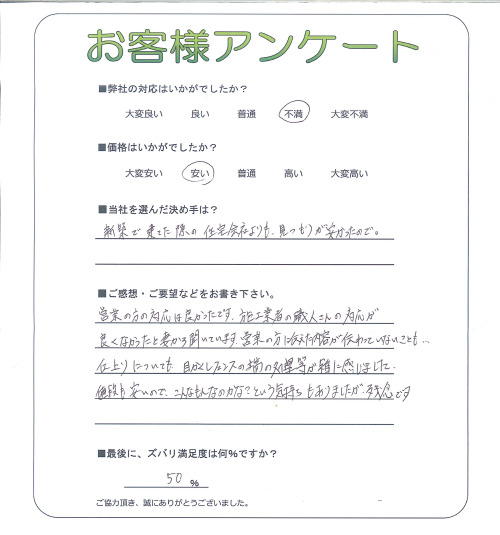 お客様アンケート
■弊社の対応はいかがでしたか？
大変良い 良い 普通 不満 大変不満
■価格はいかがでしたか？
大変安い 安い 普通 高い 大変高い
■当社を選んだ決め手は？
新築で建てた際の住宅会社よりも、見つもりが安かったので。
■ご感想・ご要望などをお書き下さい。
営業の方の対応は良かったです。施工業者の職人さんの対応が
良くなかったと妻から聞いています。営業の方に伝えた内容が伝わっていないことも…
仕上りについても、目かくしフェンスの端の処理等が雑に感じました。
値段も安いので、こんなもんなのかな？という気持ちもありましたが、残念です
■最後に、ズバリ満足度は何%ですか？
50 %
ご協力頂き、誠にありがとうございました。